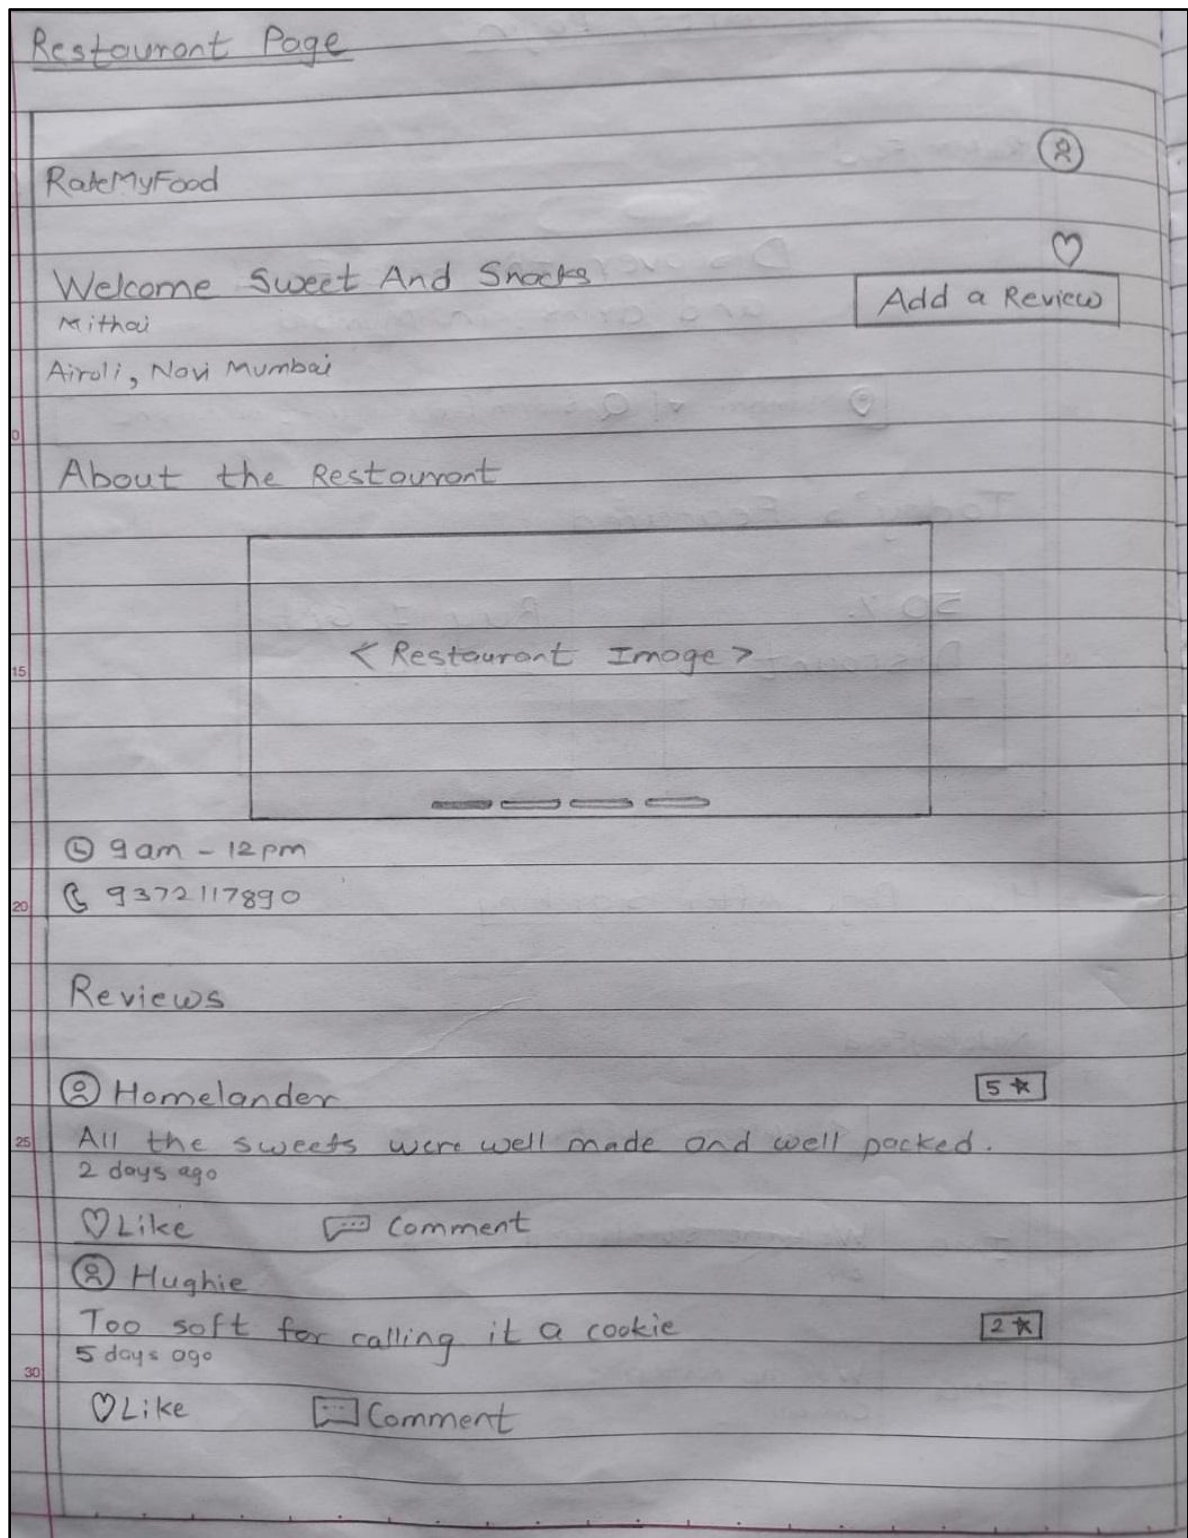 Restaurant Page
RateMyFood
Welcome Sweet And Snacks
Mithai
Add a Review
Airoli, Navi Mumbai
About the Restaurant
< Restaurant Image >
15
9am - 12pm
9372117890
20
Reviews
Homelander
5 ☆
All the sweets were well made and well packed.
25
2 days ago
Like
Comment
Hughie
Too soft for calling it a cookie
2 ☆
5 days ago
30
Like
Comment